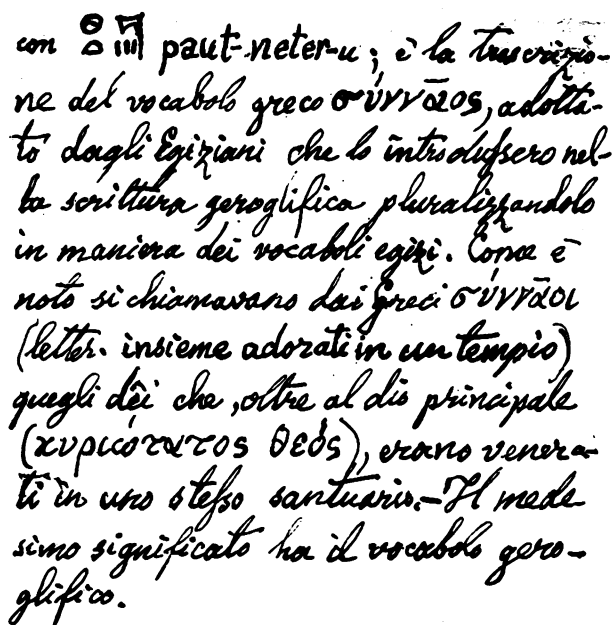 con 𓐍𓏏𓊹𓊹𓊹 paut-neter-u; è la trascrizio-
ne del vocabolo greco σύνναος, adotta-
to dagli Egiziani che lo introdussero nel-
la scrittura geroglifica pluralizzandolo
in maniera dei vocaboli egizi. Come è
noto si chiamavano dai Greci σύνναοι
(letter. insieme adorati in un tempio)
quegli dèi che, oltre al dio principale
(κυριώτατος θεός), erano venera-
ti in uno stesso santuario.–Il mede
simo significato ha il vocabolo gero-
glifico.